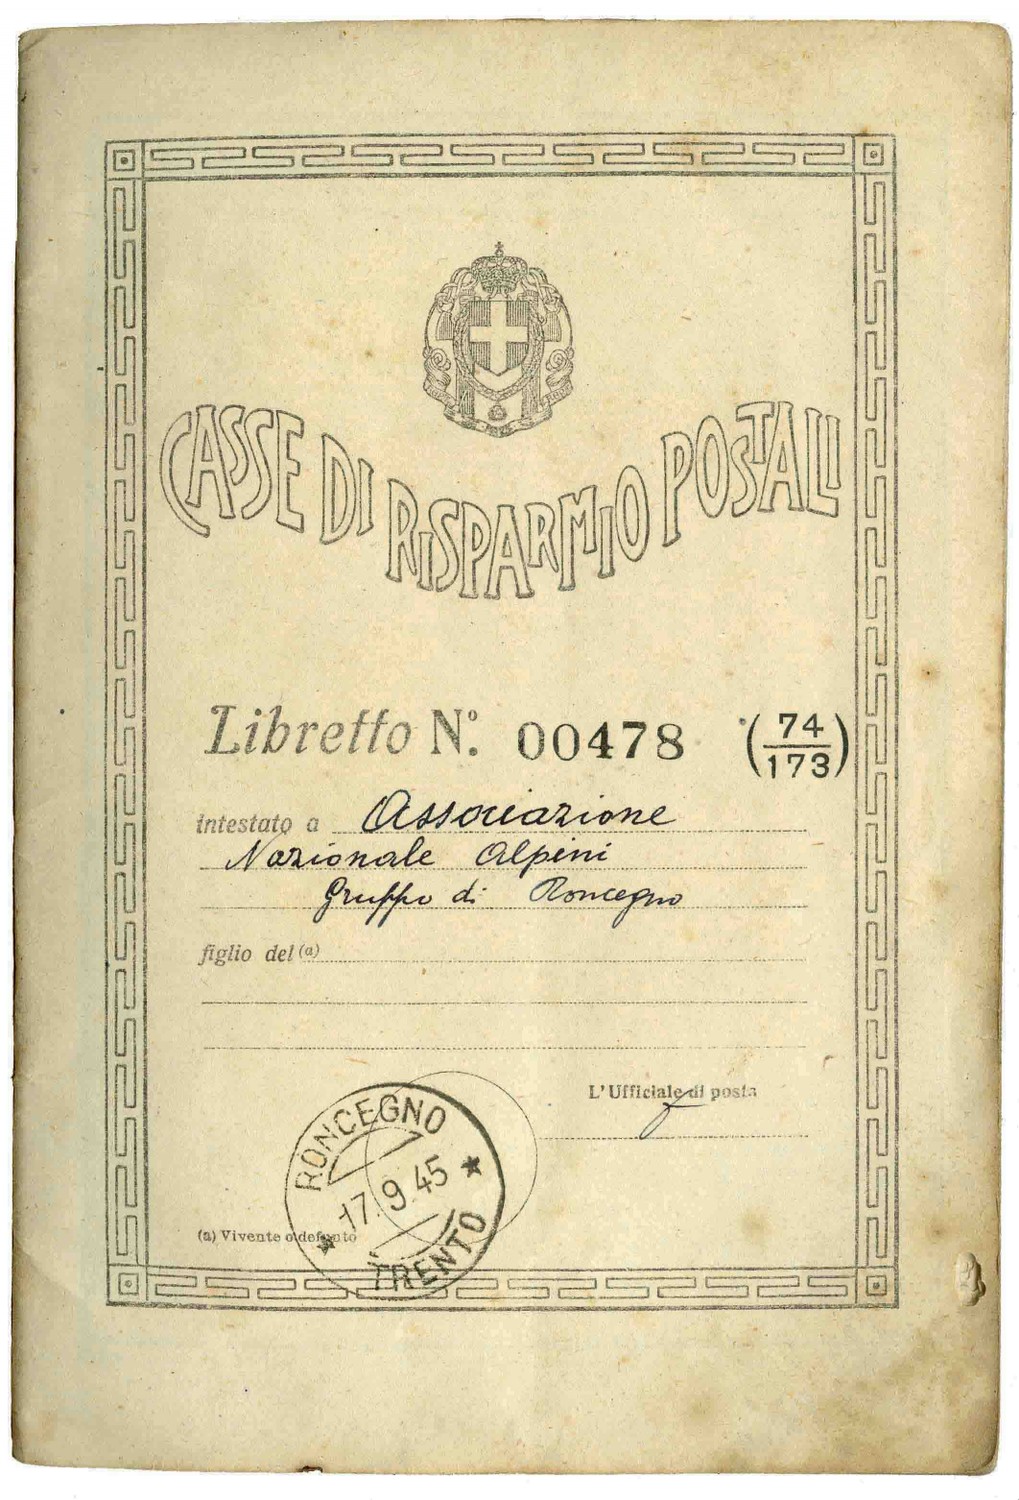 CASSE DI RISPARMIO POSTALI
Libretto N.º 00478 (74/173)
intestato a Associazione
Nazionale Alpini
Gruppo di Roncegno
figlio del (a)
L'Ufficiale di posta
RONCEGNO
17.9.45
TRENTO
(a) Vivente o defunto